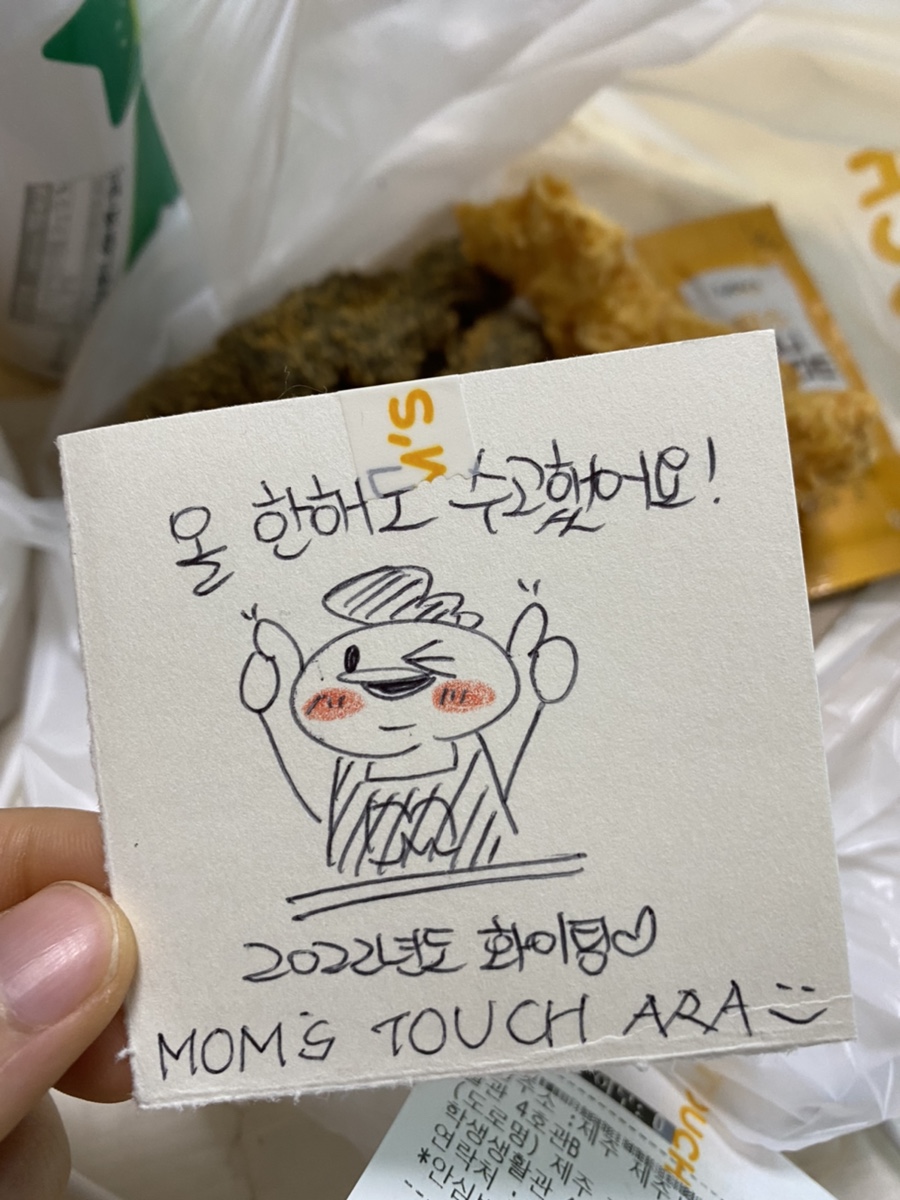 M'S
올 한해도 수고했어요!
2022년도 화이팅♡
MOM'S TOUCH ARA :)
소 :제주 제주
관 4호관B
(도로명) 제주
학생생활관
연락처 :
*안심
OUCH